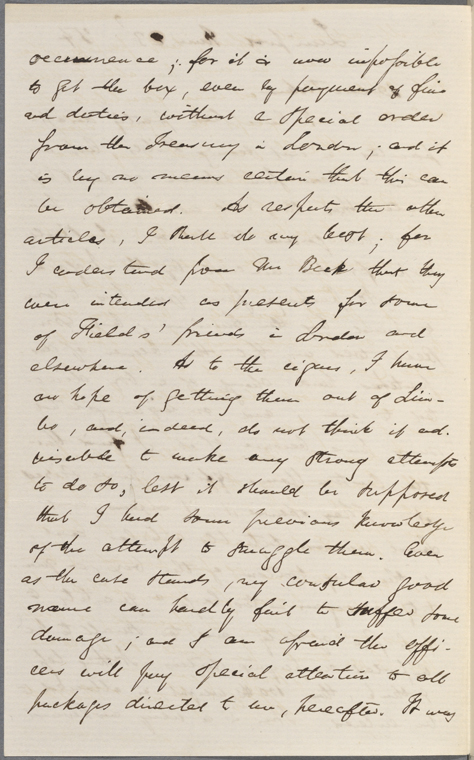 occurrence ; for it is now impossible
to get the box, even by payment of fine
and duties, without a special order
from the Treasury in London ; and it
is by no means certain that this can
be obtained. As respects the other
articles, I shall do my best ; for
I understand from Mr Beck that they
were intended as presents for some
of Fields' friends in London and
elsewhere. As to the cigars, I have
no hope of getting them out of Lim-
bo, and, indeed, do not think it ad-
visable to make any strong attempts
to do so, lest it should be supposed
that I had some previous knowledge
of the attempt to smuggle them. Even
as the case stands, my consular good
name can hardly fail to suffer some
damage ; and I am afraid the offi-
cers will pay special attention to all
packages directed to me, hereafter. It was